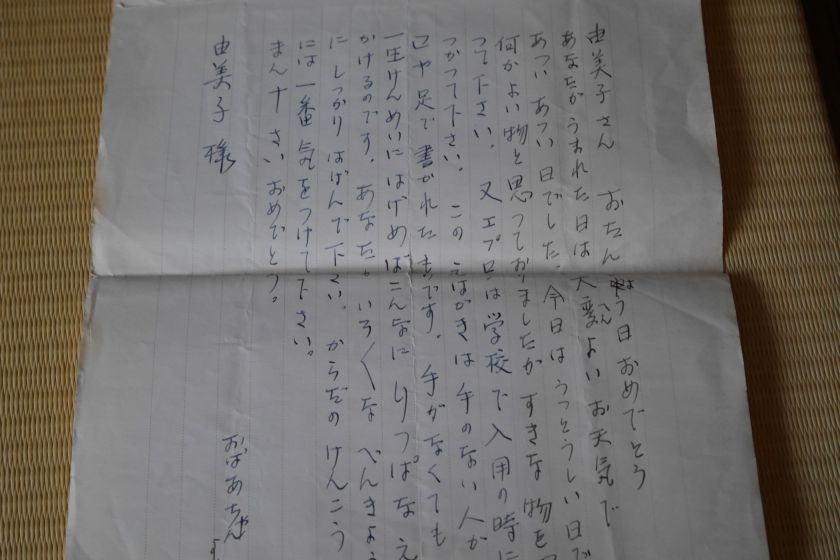 由美子さん　おたんjょう日おめでとう
あなたがうまれた日は大変よいお天気で
あつい あつい 日でした。今日はうっとうしい日で
何かよい物と思っておりましたがすきな物を
って下さい。　又エプロンは学校で入用の時に
つかって下さい。　このえはがきは手のない人が
口や足で書かれたものです。　手がなくても
一生けんめいにはげめばこんなにりっぱなえ
かけるのです。あなたもいろ〳〵なべんきょう
にしっかりはげんで下さい。　からだのけんこう
には一番気をつけて下さい。
まん十さいおめでとう。
おばあちゃん
由美子様